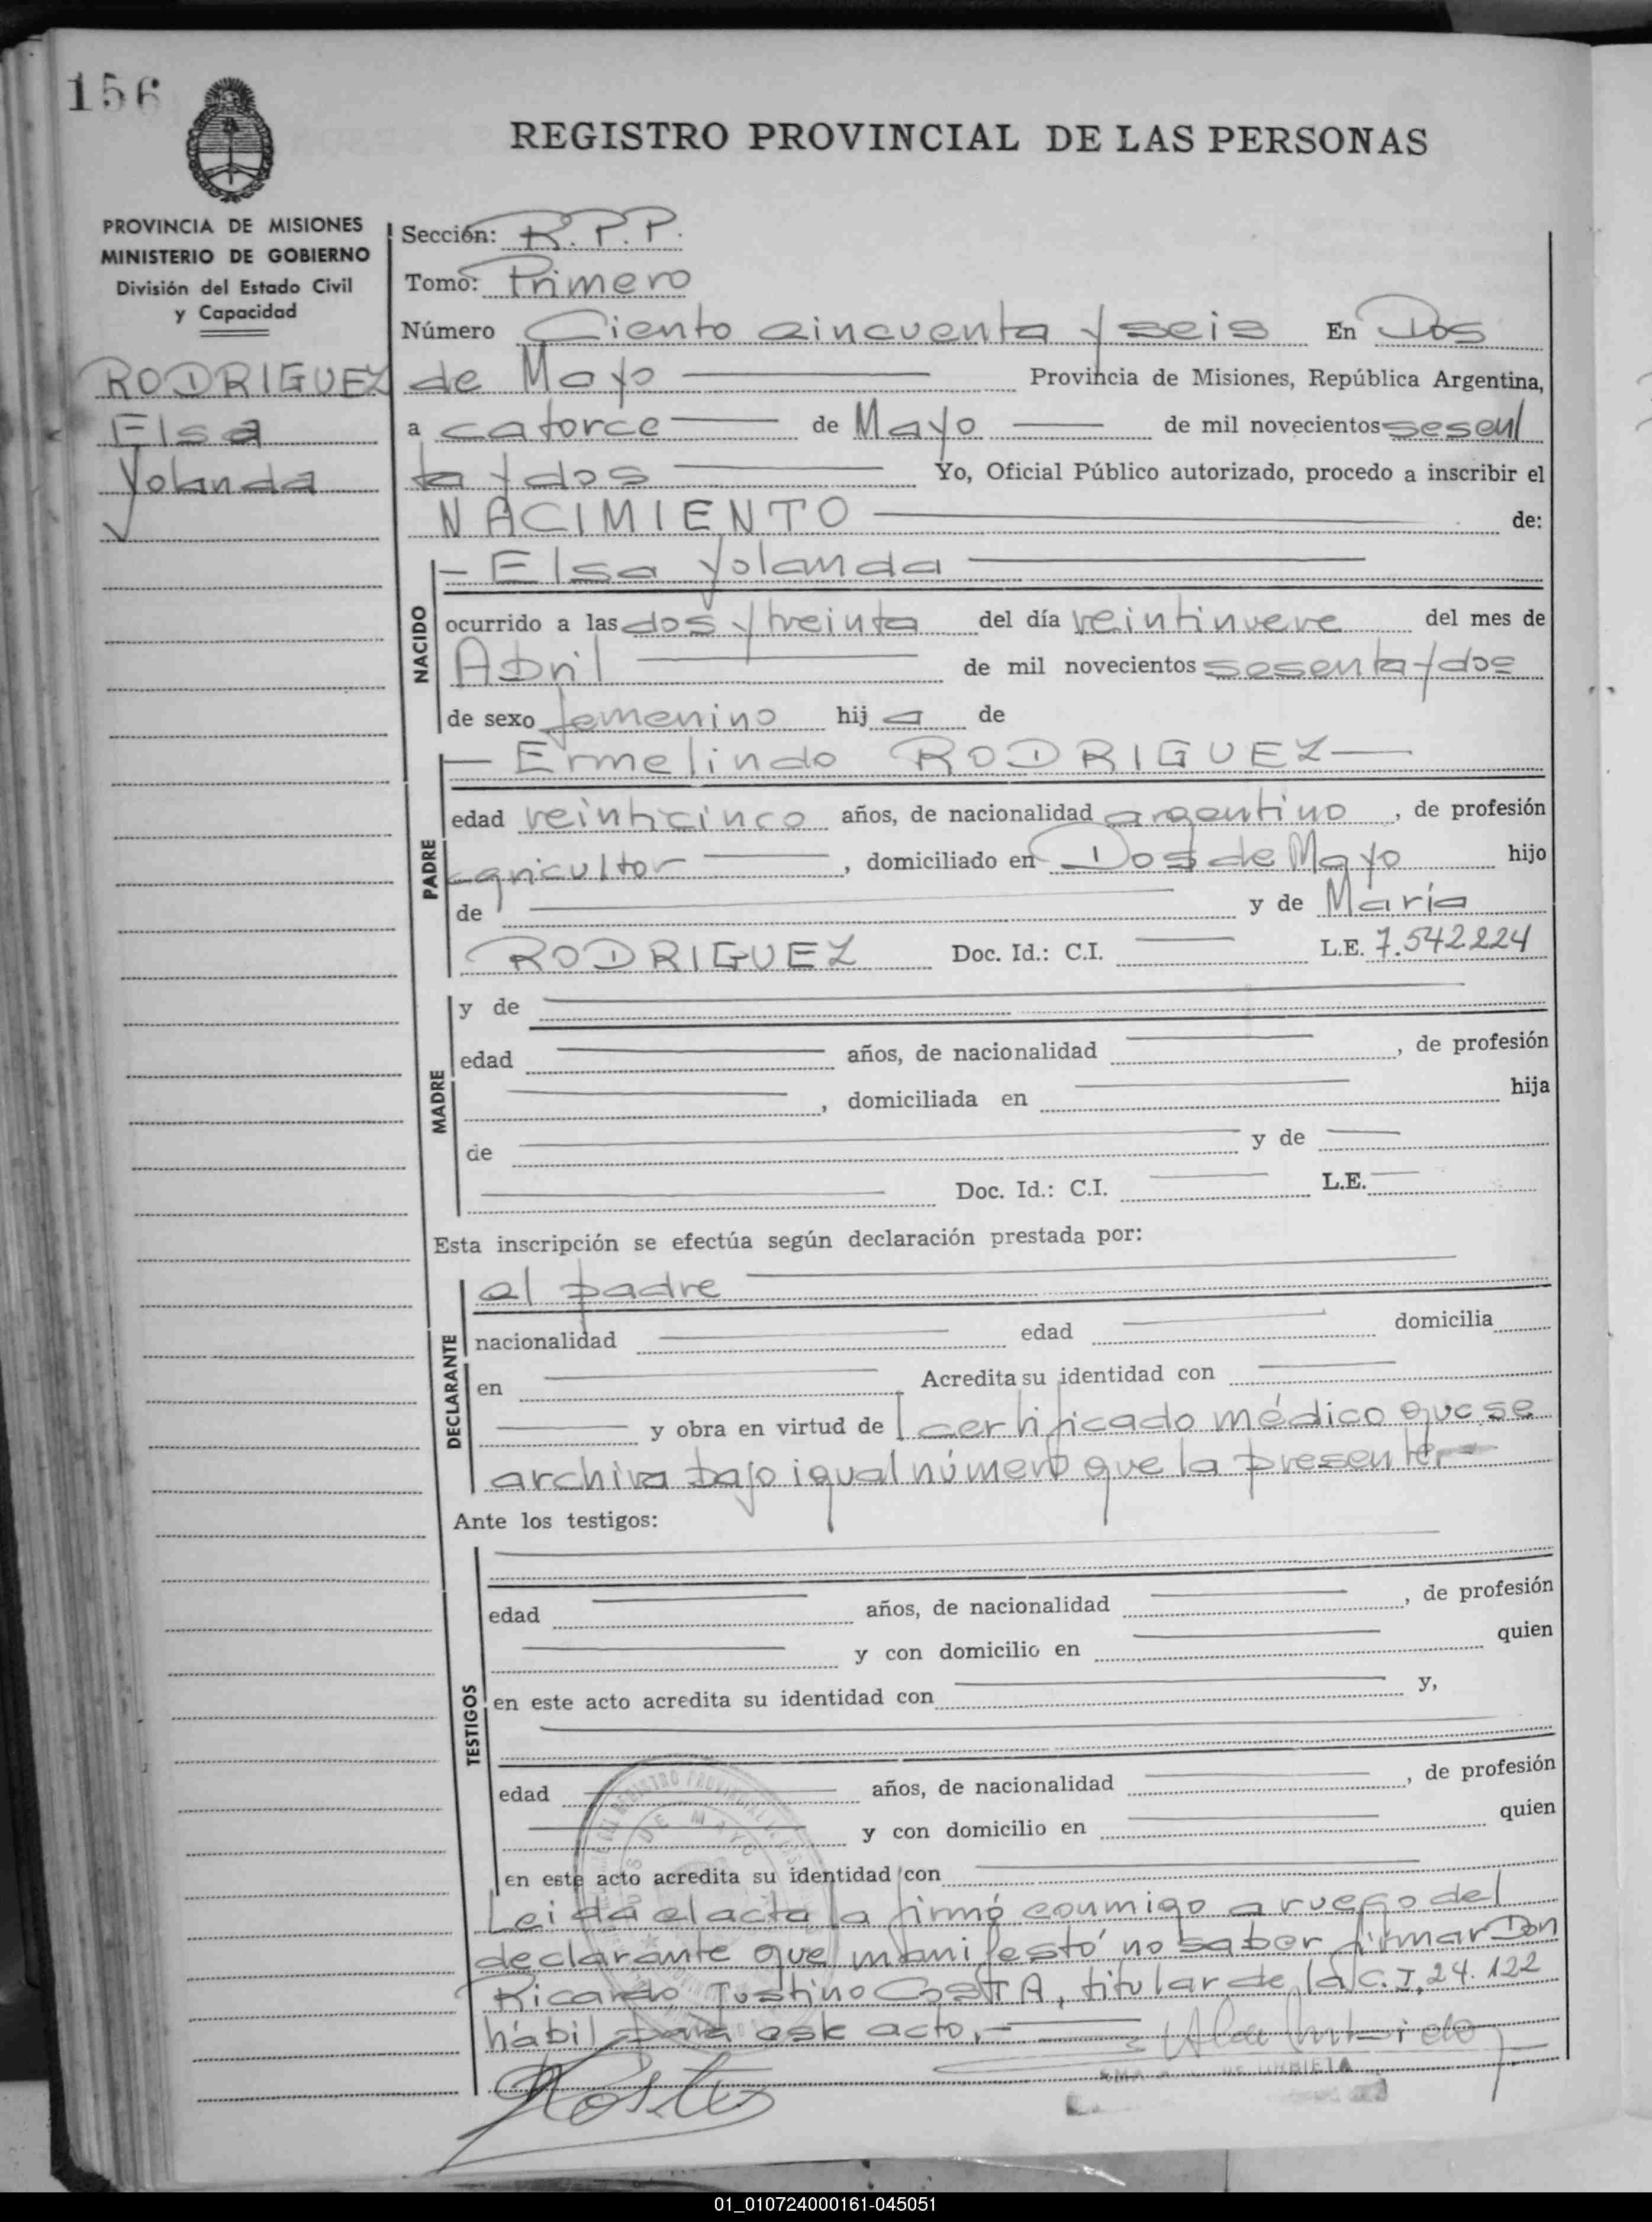 156
REGISTRO PROVINCIAL DE LAS PERSONAS
PROVINCIA DE MISIONES
MINISTERIO DE GOBIERNO
División del Estado Civil
y Capacidad
RODRIGUEZ
Elsa
Yolanda
Sección: R.P.P.
Tomo: Primero
Número Ciento cincuenta y seis En Dos
de Mayo Provincia de Misiones, República Argentina,
a catorce de Mayo de mil novecientos sesen
ta y dos Yo, Oficial Público autorizado, procedo a inscribir el
NACIMIENTO de:
NACIDO
Elsa Yolanda
ocurrido a las dos y treinta del día veintinueve del mes de
Abril de mil novecientos sesenta y dos
de sexo femenino hij a de
PADRE
Ermelindo RODRIGUEZ
edad veinticinco años, de nacionalidad argentino, de profesión
agricultor, domiciliado en Dos de Mayo hijo
de y de María
RODRIGUEZ Doc. Id.: C.I. L.E. 7.542.224
MADRE
y de
edad años, de nacionalidad , de profesión
, domiciliada en hija
de y de
Doc. Id.: C.I. L.E.
Esta inscripción se efectúa según declaración prestada por:
DECLARANTE
el padre
nacionalidad edad domicilia
en Acredita su identidad con
y obra en virtud de certificado médico que se
archiva bajo igual número que la presente
Ante los testigos:
TESTIGOS
edad años, de nacionalidad , de profesión
y con domicilio en quien
en este acto acredita su identidad con y,
edad años, de nacionalidad , de profesión
y con domicilio en quien
en este acto acredita su identidad con
Leida el acta la firmó conmigo a ruego del
declarante que manifestó no saber firmar Don
Ricardo Justino COSTA, titular de la C.I. 24.122
hábil para este acto.
01_010724000161-045051